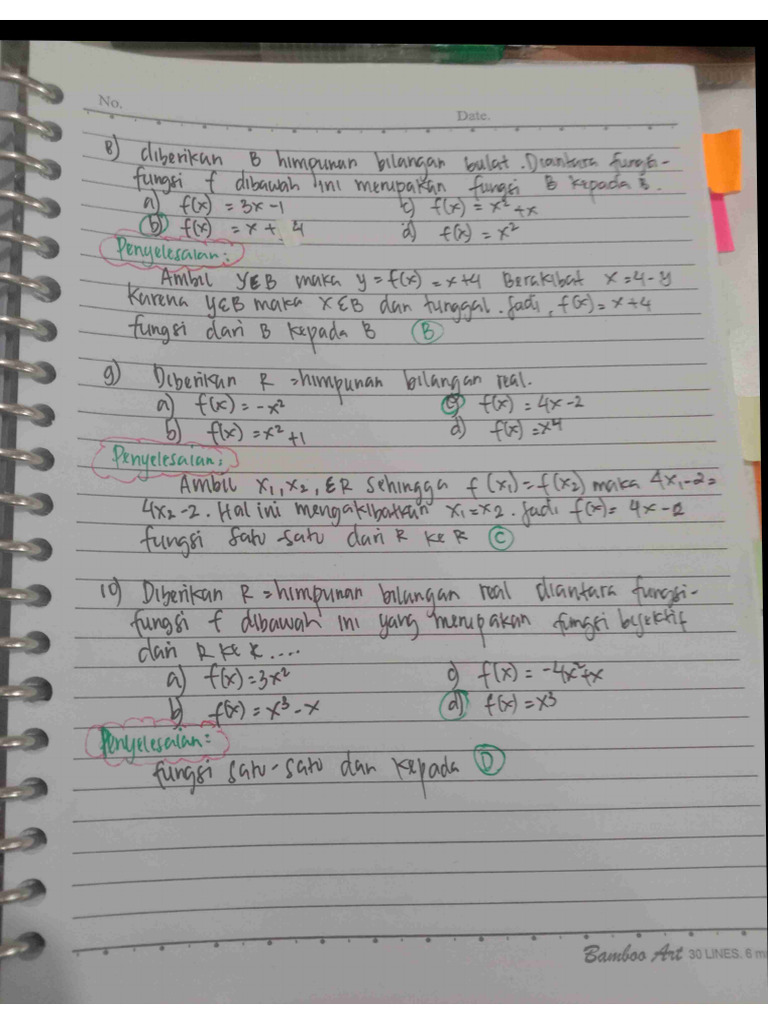 No.
Date.
8) diberikan B himpunan bilangan bulat. Diantara fungsi-
fungsi f dibawah ini merupakan fungsi B kepada B.
a) f(x) = 3x-1 c) f(x) = x² +x
b) f(x) = x + 4 d) f(x) = x²
Penyelesaian:
Ambil y∈B maka y = f(x) = x+4 Berakibat x = 4-y
Karena y∈B maka x∈B dan tunggal. Jadi, f(x) = x+4
fungsi dari B kepada B (B)
9) Diberikan R =himpunan bilangan real.
a) f(x) = -x² c) f(x) = 4x-2
b) f(x) = x²+1 d) f(x) = x⁴
Penyelesaian:
Ambil x₁,x₂, ∈R sehingga f(x₁) = f(x₂) maka 4x₁-2=
4x₂-2. Hal ini mengakibatkan x₁=x₂. Jadi f(x) = 4x-2
fungsi satu-satu dari R ke R (C)
10) Diberikan R =himpunan bilangan real diantara fungsi-
fungsi f dibawah ini yang merupakan fungsi bijektif
dari R ke R ....
a) f(x) = 3x² c) f(x) = -4x²+x
b) f(x) = x³ - x d) f(x) = x³
Penyelesaian:
fungsi satu-satu dan kepada (D)
Bamboo Art 30 LINES. 6 m